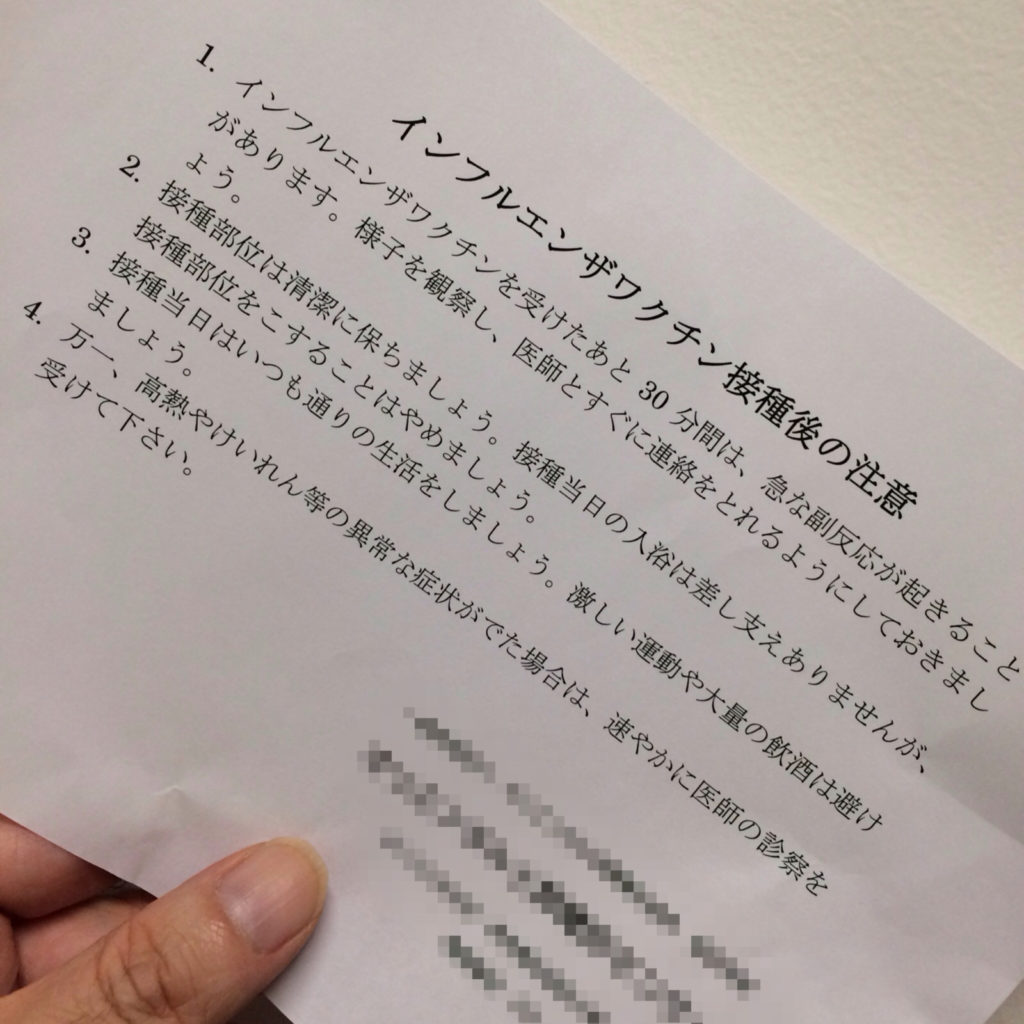 インフルエンザワクチン接種後の注意
1. インフルエンザワクチンを受けたあと 30 分間は、急な副反応が起きること
があります。様子を観察し、医師とすぐに連絡をとれるようにしておきまし
ょう。
2. 接種部位は清潔に保ちましょう。接種当日の入浴は差し支えありませんが、
接種部位をこすることはやめましょう。
3. 接種当日はいつも通りの生活をしましょう。激しい運動や大量の飲酒は避け
ましょう。
4. 万一、高熱やけいれん等の異常な症状がでた場合は、速やかに医師の診察を
受けて下さい。